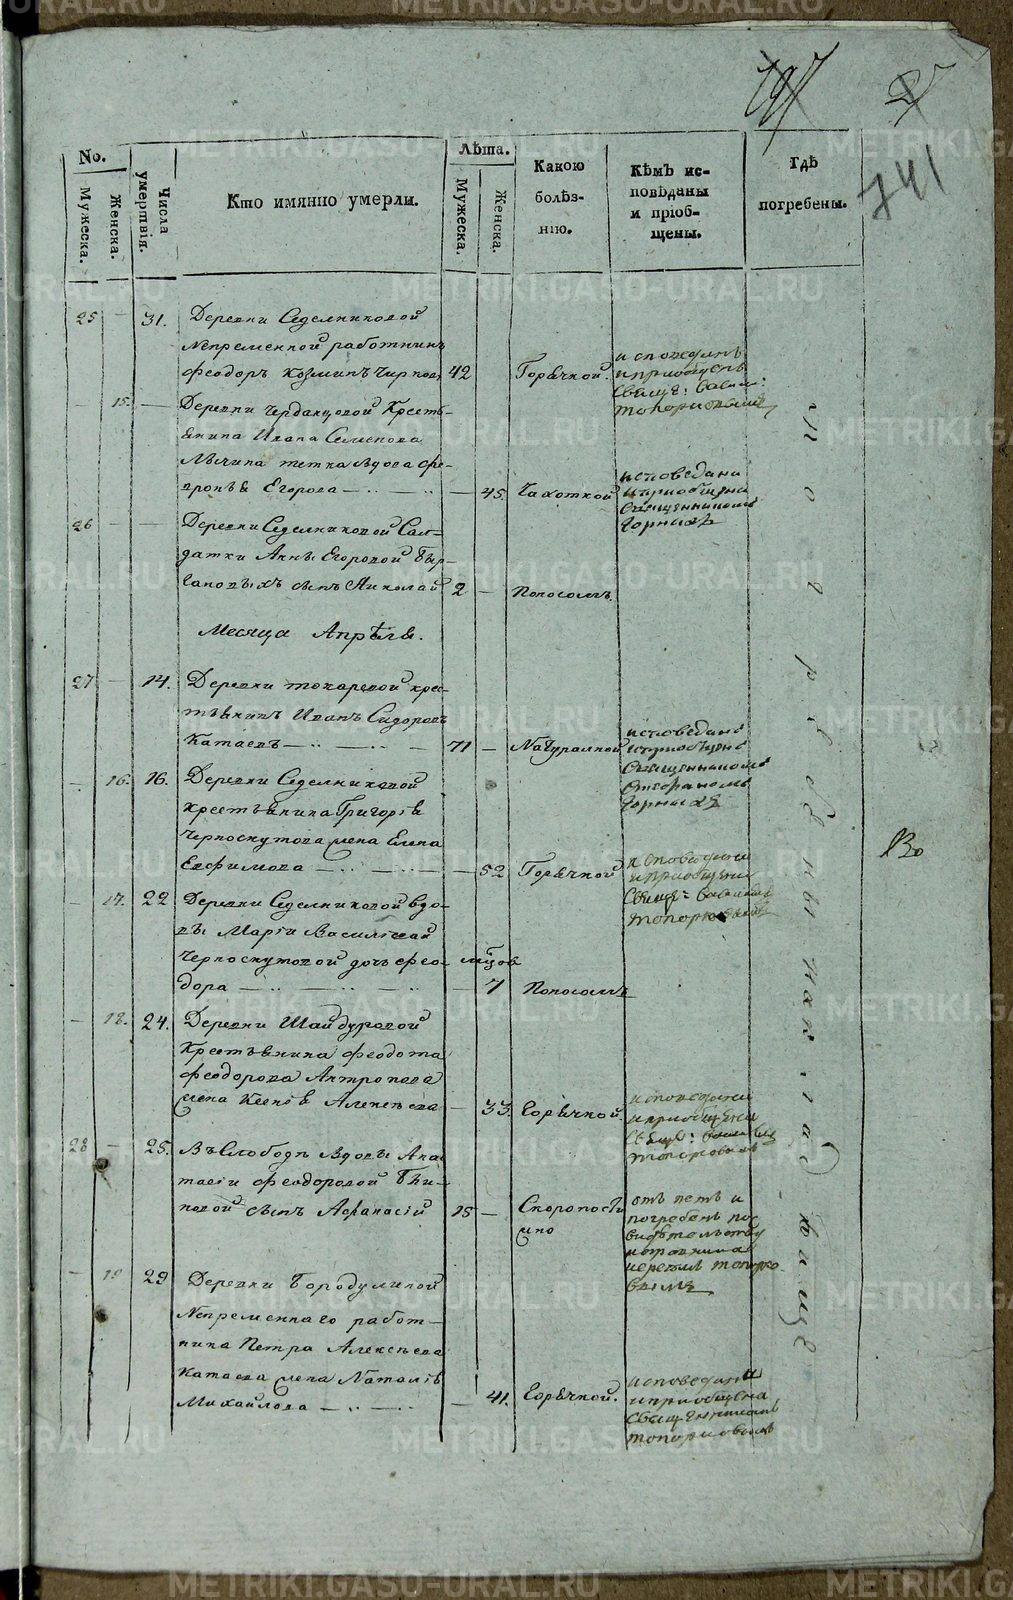 741
No.
Мужеска.
Женска.
Числа умертвія.
Кто имянно умерли.
Лѣта.
Мужеска.
Женска.
Какою
болѣз-
нію.
Кѣмъ ис-
повѣданы
и пріоб-
щены.
Гдѣ
погребены.
25 — 31. Деревни Седелниковой
Непременной работникъ
Феодоръ Козминъ 42 Горячкой. исповеданъ
и приобщенъ
Свящ: Васил:
Топорковымъ
— 15. — Деревни Чердацовой Кресть-
янина Ивана Семенова
тетка вдова Фе-
вронья Егорова — 45. Чахоткой исповедана
и приобщена
Священникомъ
26 — — Деревни Седелниковой Сол-
датки Анны Егоровой
сынъ Николай 2 — Поносомъ.
Месяца Апрѣля.
27 — 14. Деревни токаревой крес-
тьянинъ Иванъ Сидоровъ
Катаевъ 71 — Натуралной исповеданъ
и приобщенъ
Священникомъ
— 16. 16. Деревни Седелниковой
крестьянина Григорія
Черноскутова жена Елена
Евфимова — 52 Горячкой исповедана
и приобщена
Свящ: Василіемъ
— 17. 22 Деревни Седелниковой вдо-
вы Маріи Васильевой
Черноскутовой дочь Фео- мцов
дора — 7 Поносомъ
— 18. 24. Деревни Шайдуровой
Крестьянина Феодота
Феодорова Антропова
жена Ксенія Алексѣева — 33. Горячкой. исповедана
и приобщена
Свящ: Василіемъ
28 — 25. Въ Слободѣ Вдовы Анас-
тасіи Феодоровой
сынъ Афанасій 15 — Скоропостиж
но отпетъ и
погребенъ по
свидѣтельству
— 19 29 Деревни Бородулиной
Непременнаго работ-
ника Петра Алексѣева
Катаева жена Наталія
Михайлова — 41. Горячкой. исповедана
и приобщена
Священникомъ
Топорковымъ
на приходскомъ кладбище
Во
METRIKI.GASO-URAL.RU